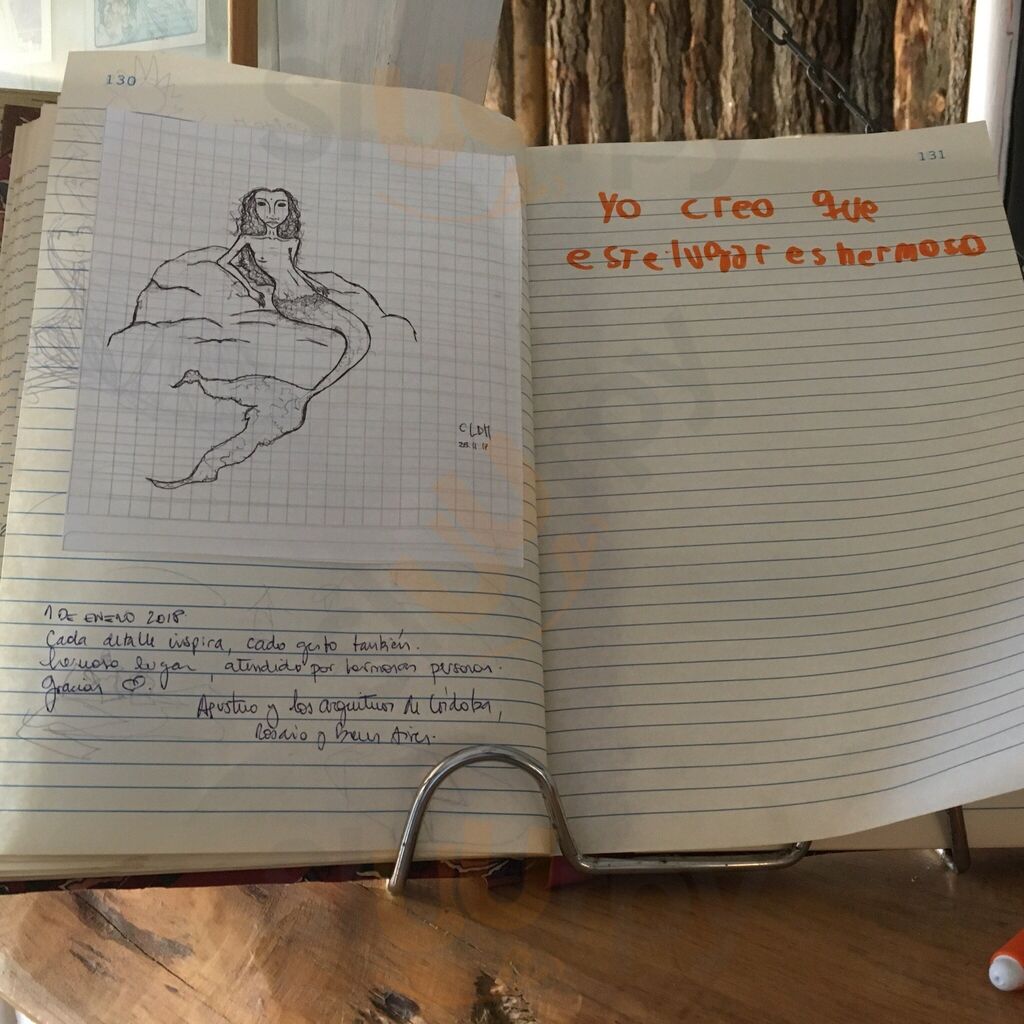 130
CLDM
1 DE ENERO 2018
Cada detalle inspira, cada gesto también.
hermoso lugar, atendido por hermosas personas.
gracias
Agustino y los arquitectos de Córdoba,
Rosario y Buenos Aires.
131
Yo creo que
este lugar es hermoso